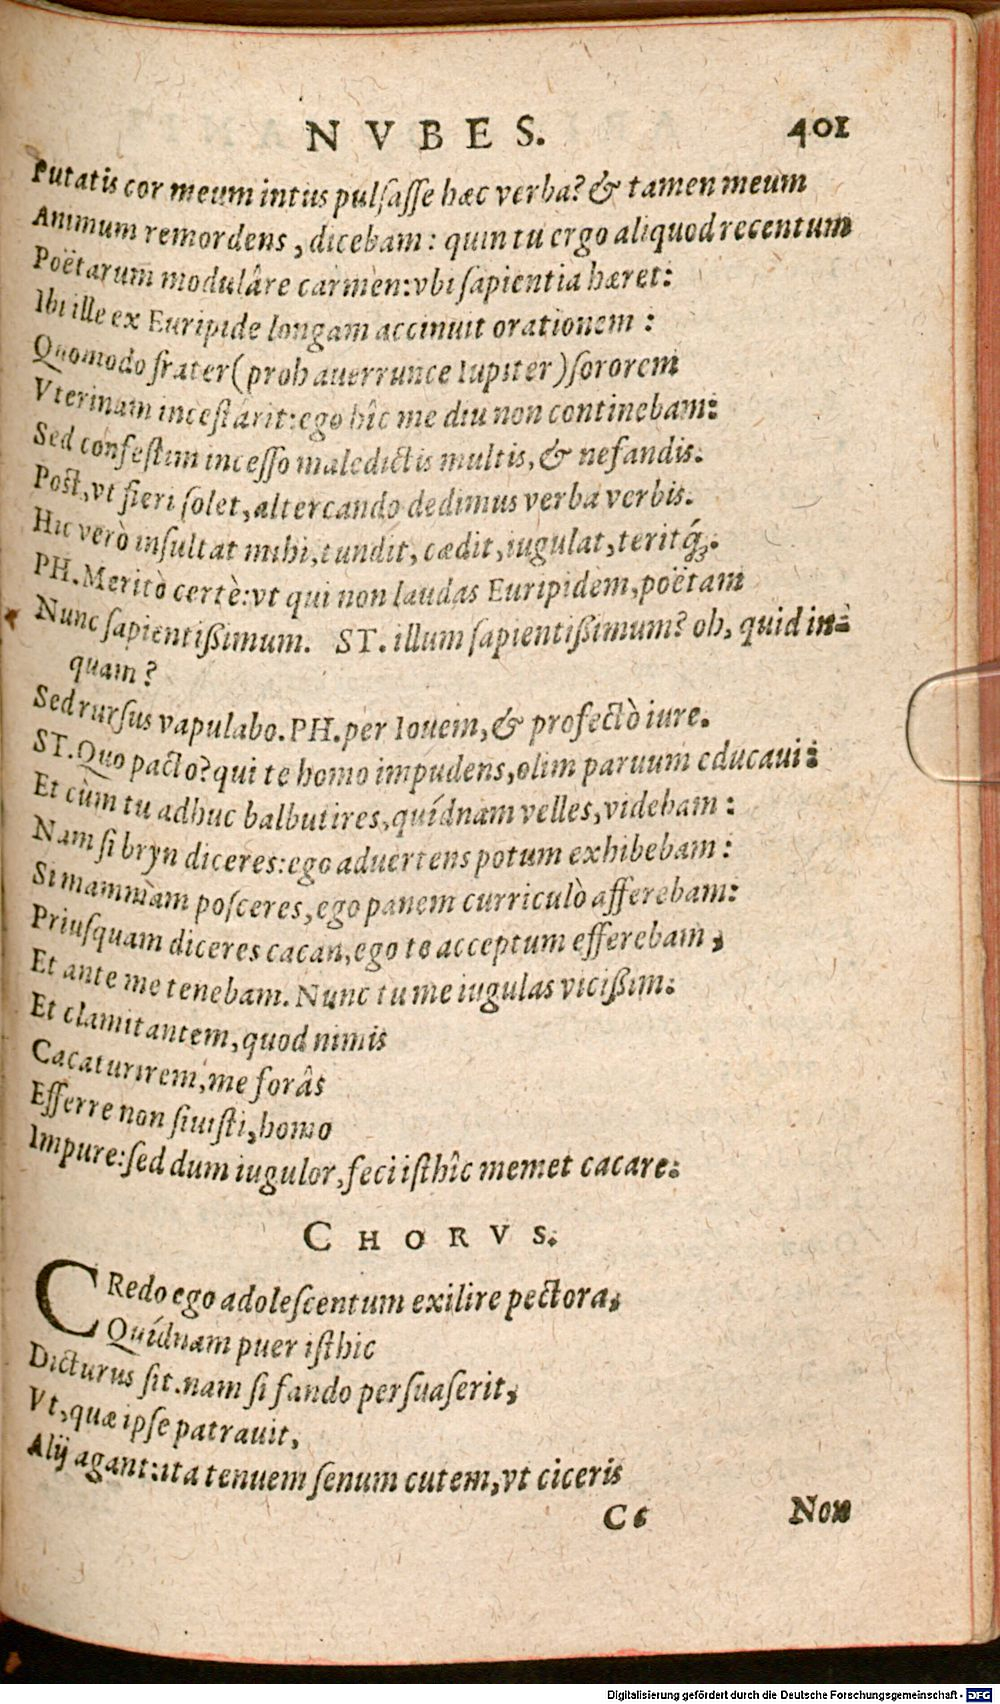 NVBES. 401
Putatis cor meum intus pulſaſſe hæc verba? & tamen meum
Animum remordens, dicebam: quin tu ergo aliquod recentum
Poëtarum modulâre carmen: vbi ſapientia hæret:
Ibi ille ex Euripide longam accinuit orationem:
Quomodo frater (proh auerrunce Iupiter) ſororem
Vterinam inceſtârit: ego hîc me diu non continebam:
Sed confeſtim inceſſo maledictis multis, & nefandis.
Post, vt fieri ſolet, altercando dedimus verba verbis.
Hic verò inſultat mihi, tundit, cædit, iugulat, teritq́ꝫ.
PH. Meritò certè: vt qui non laudas Euripidem, poëtam
Nunc ſapientißimum. ST. illum ſapientißimum? oh, quid in-
quam?
Sed rurſus vapulabo. PH. per Iouem, & profectò iure.
ST. Quo pacto? qui te homo impudens, olim paruum educaui:
Et cùm tu adhuc balbutires, quídnam velles, videbam:
Nam ſi bryn diceres: ego aduertens potum exhibebam:
Si mammam poſceres, ego panem curriculò afferebam:
Priuſquam diceres cacan, ego te acceptum efferebam,
Et ante me tenebam. Nunc tu me iugulas vicißim:
Et clamitantem, quod nimis
Cacaturirem, me forâs
Efferre non ſiuiſti, homo
Impure: ſed dum iugulor, feci iſthîc memet cacare.
CHORVS.
CRedo ego adoleſcentum exilire pectora,
Quídnam puer iſthic
Dicturus ſit. nam ſi fando perſuaſerit,
Vt, quæ ipſe patrauit,
Alij agant: ita tenuem ſenum cutem, vt ciceris
C6 Non
Digitalisierung gefördert durch die Deutsche Forschungsgemeinschaft - DFG